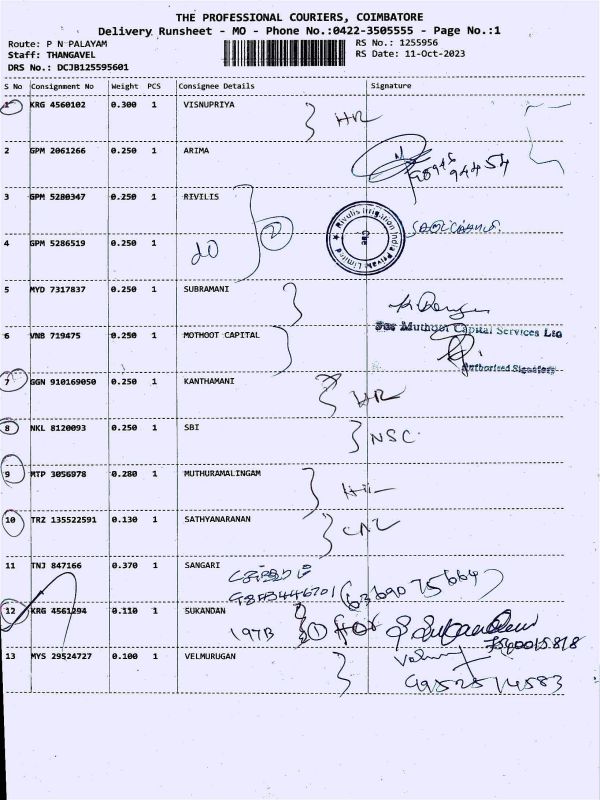 THE PROFESSIONAL COURIERS, COIMBATORE
Delivery Runsheet - MO - Phone No.:0422-3505555 - Page No.:1
Route: P N PALAYAM RS No.: 1255956
Staff: THANGAVEL RS Date: 11-Oct-2023
DRS No.: DCJB125595601
S No Consignment No Weight PCS Consignee Details Signature
1 KRG 4560102 0.300 1 VISNUPRIYA
2 GPM 2061266 0.250 1 ARIMA
3 GPM 5280347 0.250 1 RIVILIS
Rivulis Irrigation India Private Limited
4 GPM 5286519 0.250 1 2
5 MYD 7317837 0.250 1 SUBRAMANI
For Muthoot Capital Services Ltd
6 VNB 719475 0.250 1 MOTHOOT CAPITAL
Authorised Signatory
7 GGN 910169050 0.250 1 KANTHAMANI
8 NKL 8120093 0.250 1 SBI NSC
9 MTP 3056978 0.280 1 MUTHURAMALINGAM
10 TRZ 135522591 0.130 1 SATHYANARANAN
11 TNJ 847166 0.370 1 SANGARI
(63690 75664)
12 KRG 4561294 0.110 1 SUKANDAN
197B 1
13 MYS 29524727 0.100 1 VELMURUGAN
9952514583